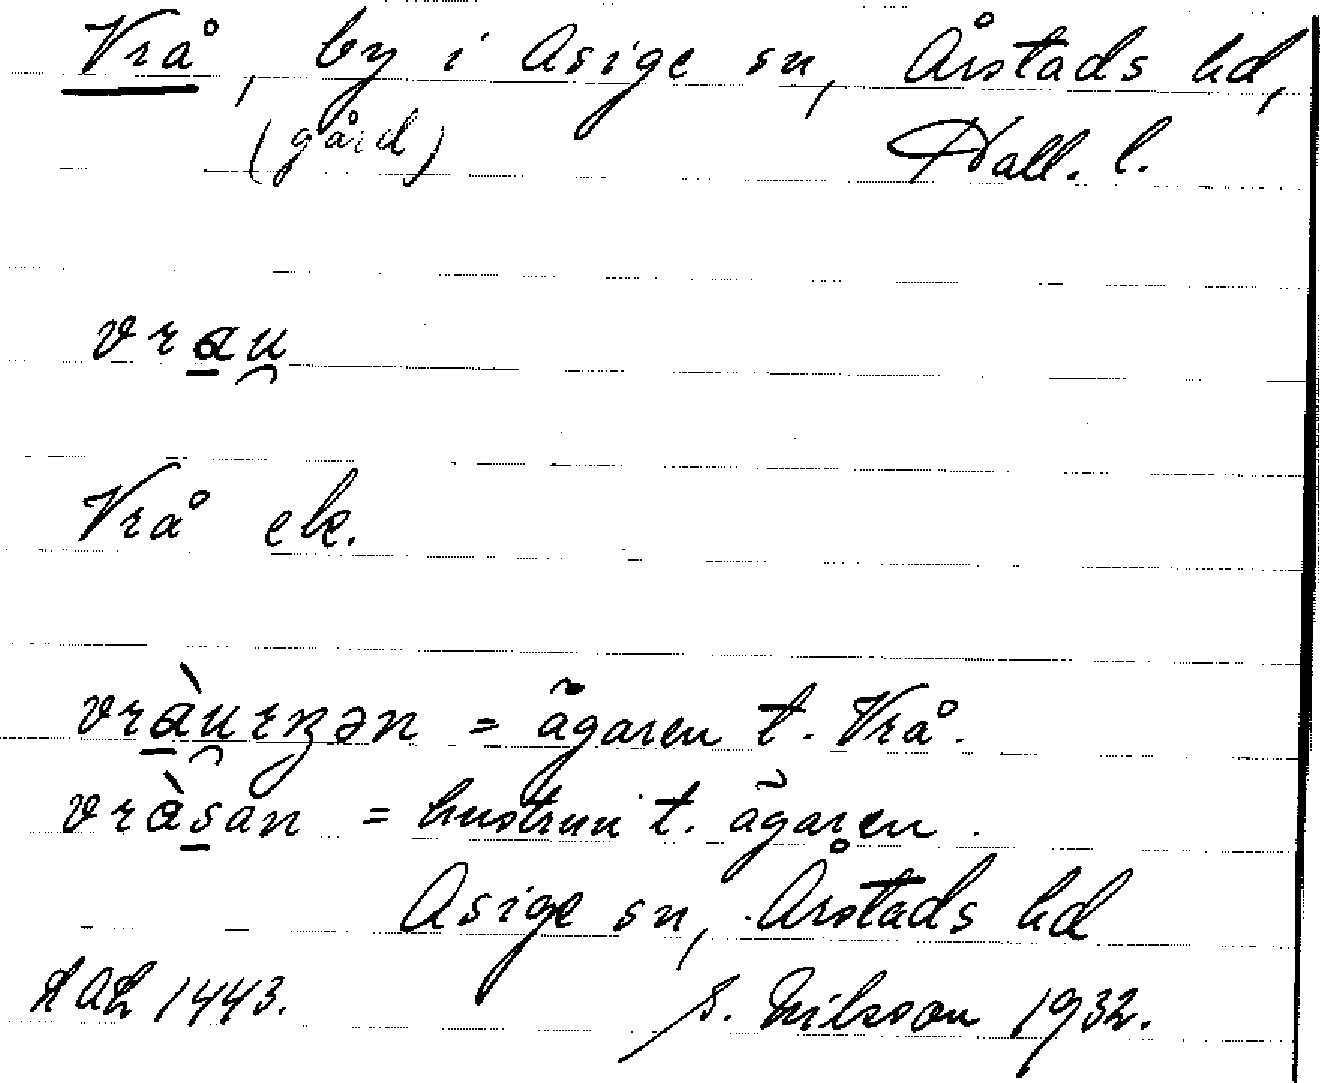 Vrå, by i Asige sn, Årstads hd,
(gård) Hall. l.
vrau̯
Vrå ek.
vràu̯rn̥ən = ägaren t. Vrå.
vràsan = hustrun t. ägaren.
Asige sn, Årstads hd
LAL 1443. S. Nilsson 1932.